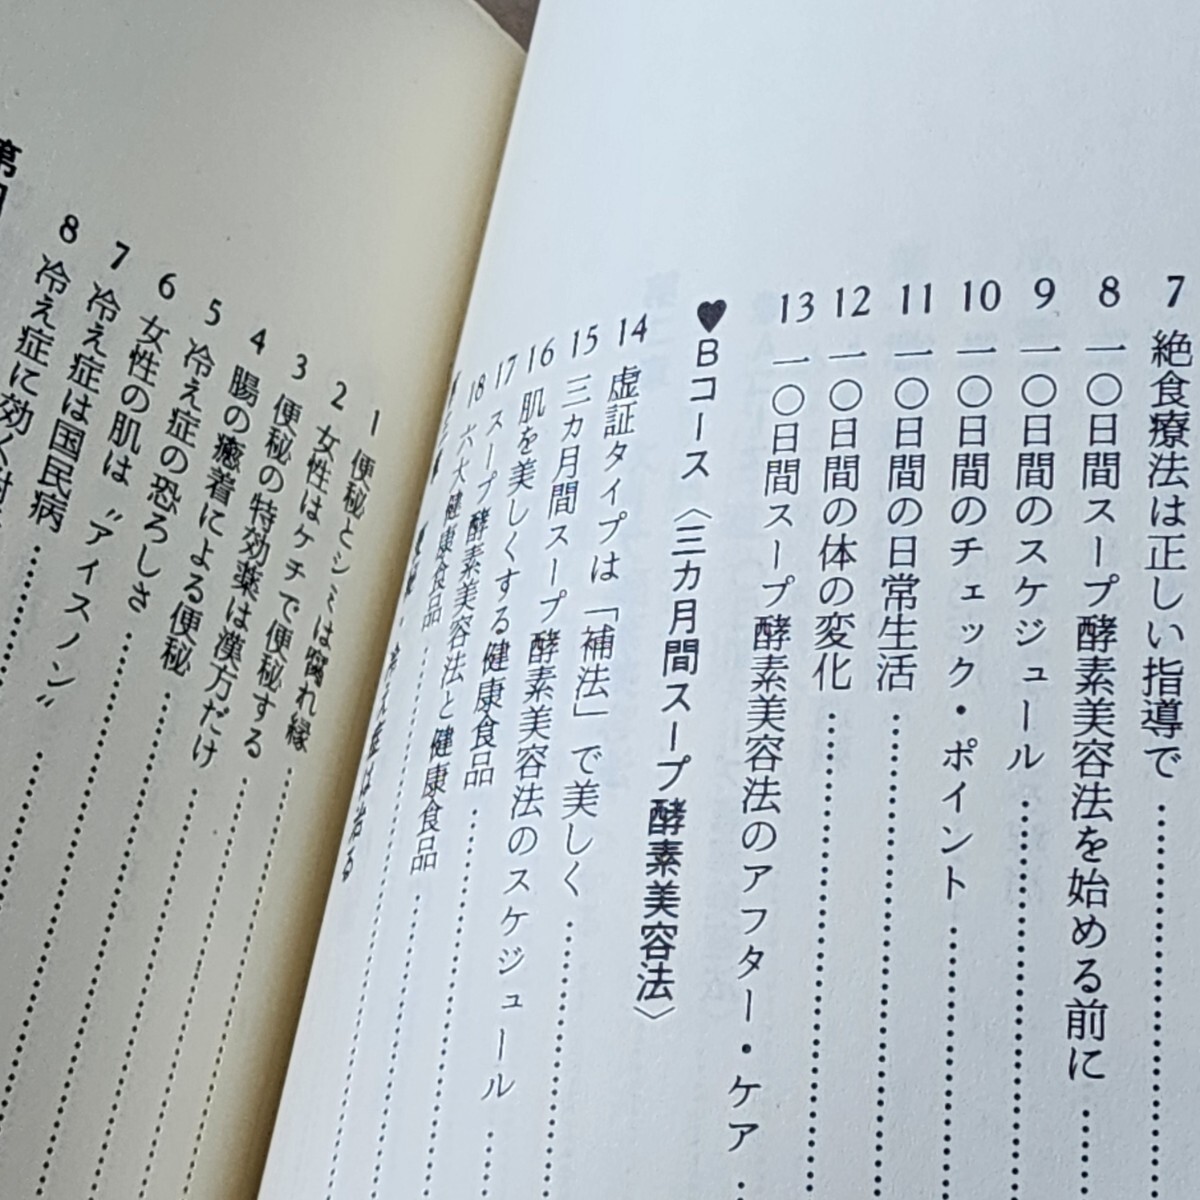 7 絶食療法は正しい指導で
8 一〇日間スープ酵素美容法を始める前に
9 一〇日間のスケジュール
10 一〇日間のチェック・ポイント
11 一〇日間の日常生活
12 一〇日間の体の変化
13 一〇日間スープ酵素美容法のアフター・ケア
♥Bコース〈三カ月間スープ酵素美容法〉
14 虚証タイプは「補法」で美しく
15 三カ月間スープ酵素美容法のスケジュール
16 肌を美しくする健康食品
17 スープ酵素美容法と健康食品
18 六大健康食品
冷え症は治る
1 便秘とシミは腐れ縁
2 女性はケチで便秘する
3 便秘の特効薬は漢方だけ
4 腸の癒着による便秘
5 冷え症の恐ろしさ
6 女性の肌は〝アイスノン〟
7 冷え症は国民病
8 冷え症に効く
第四